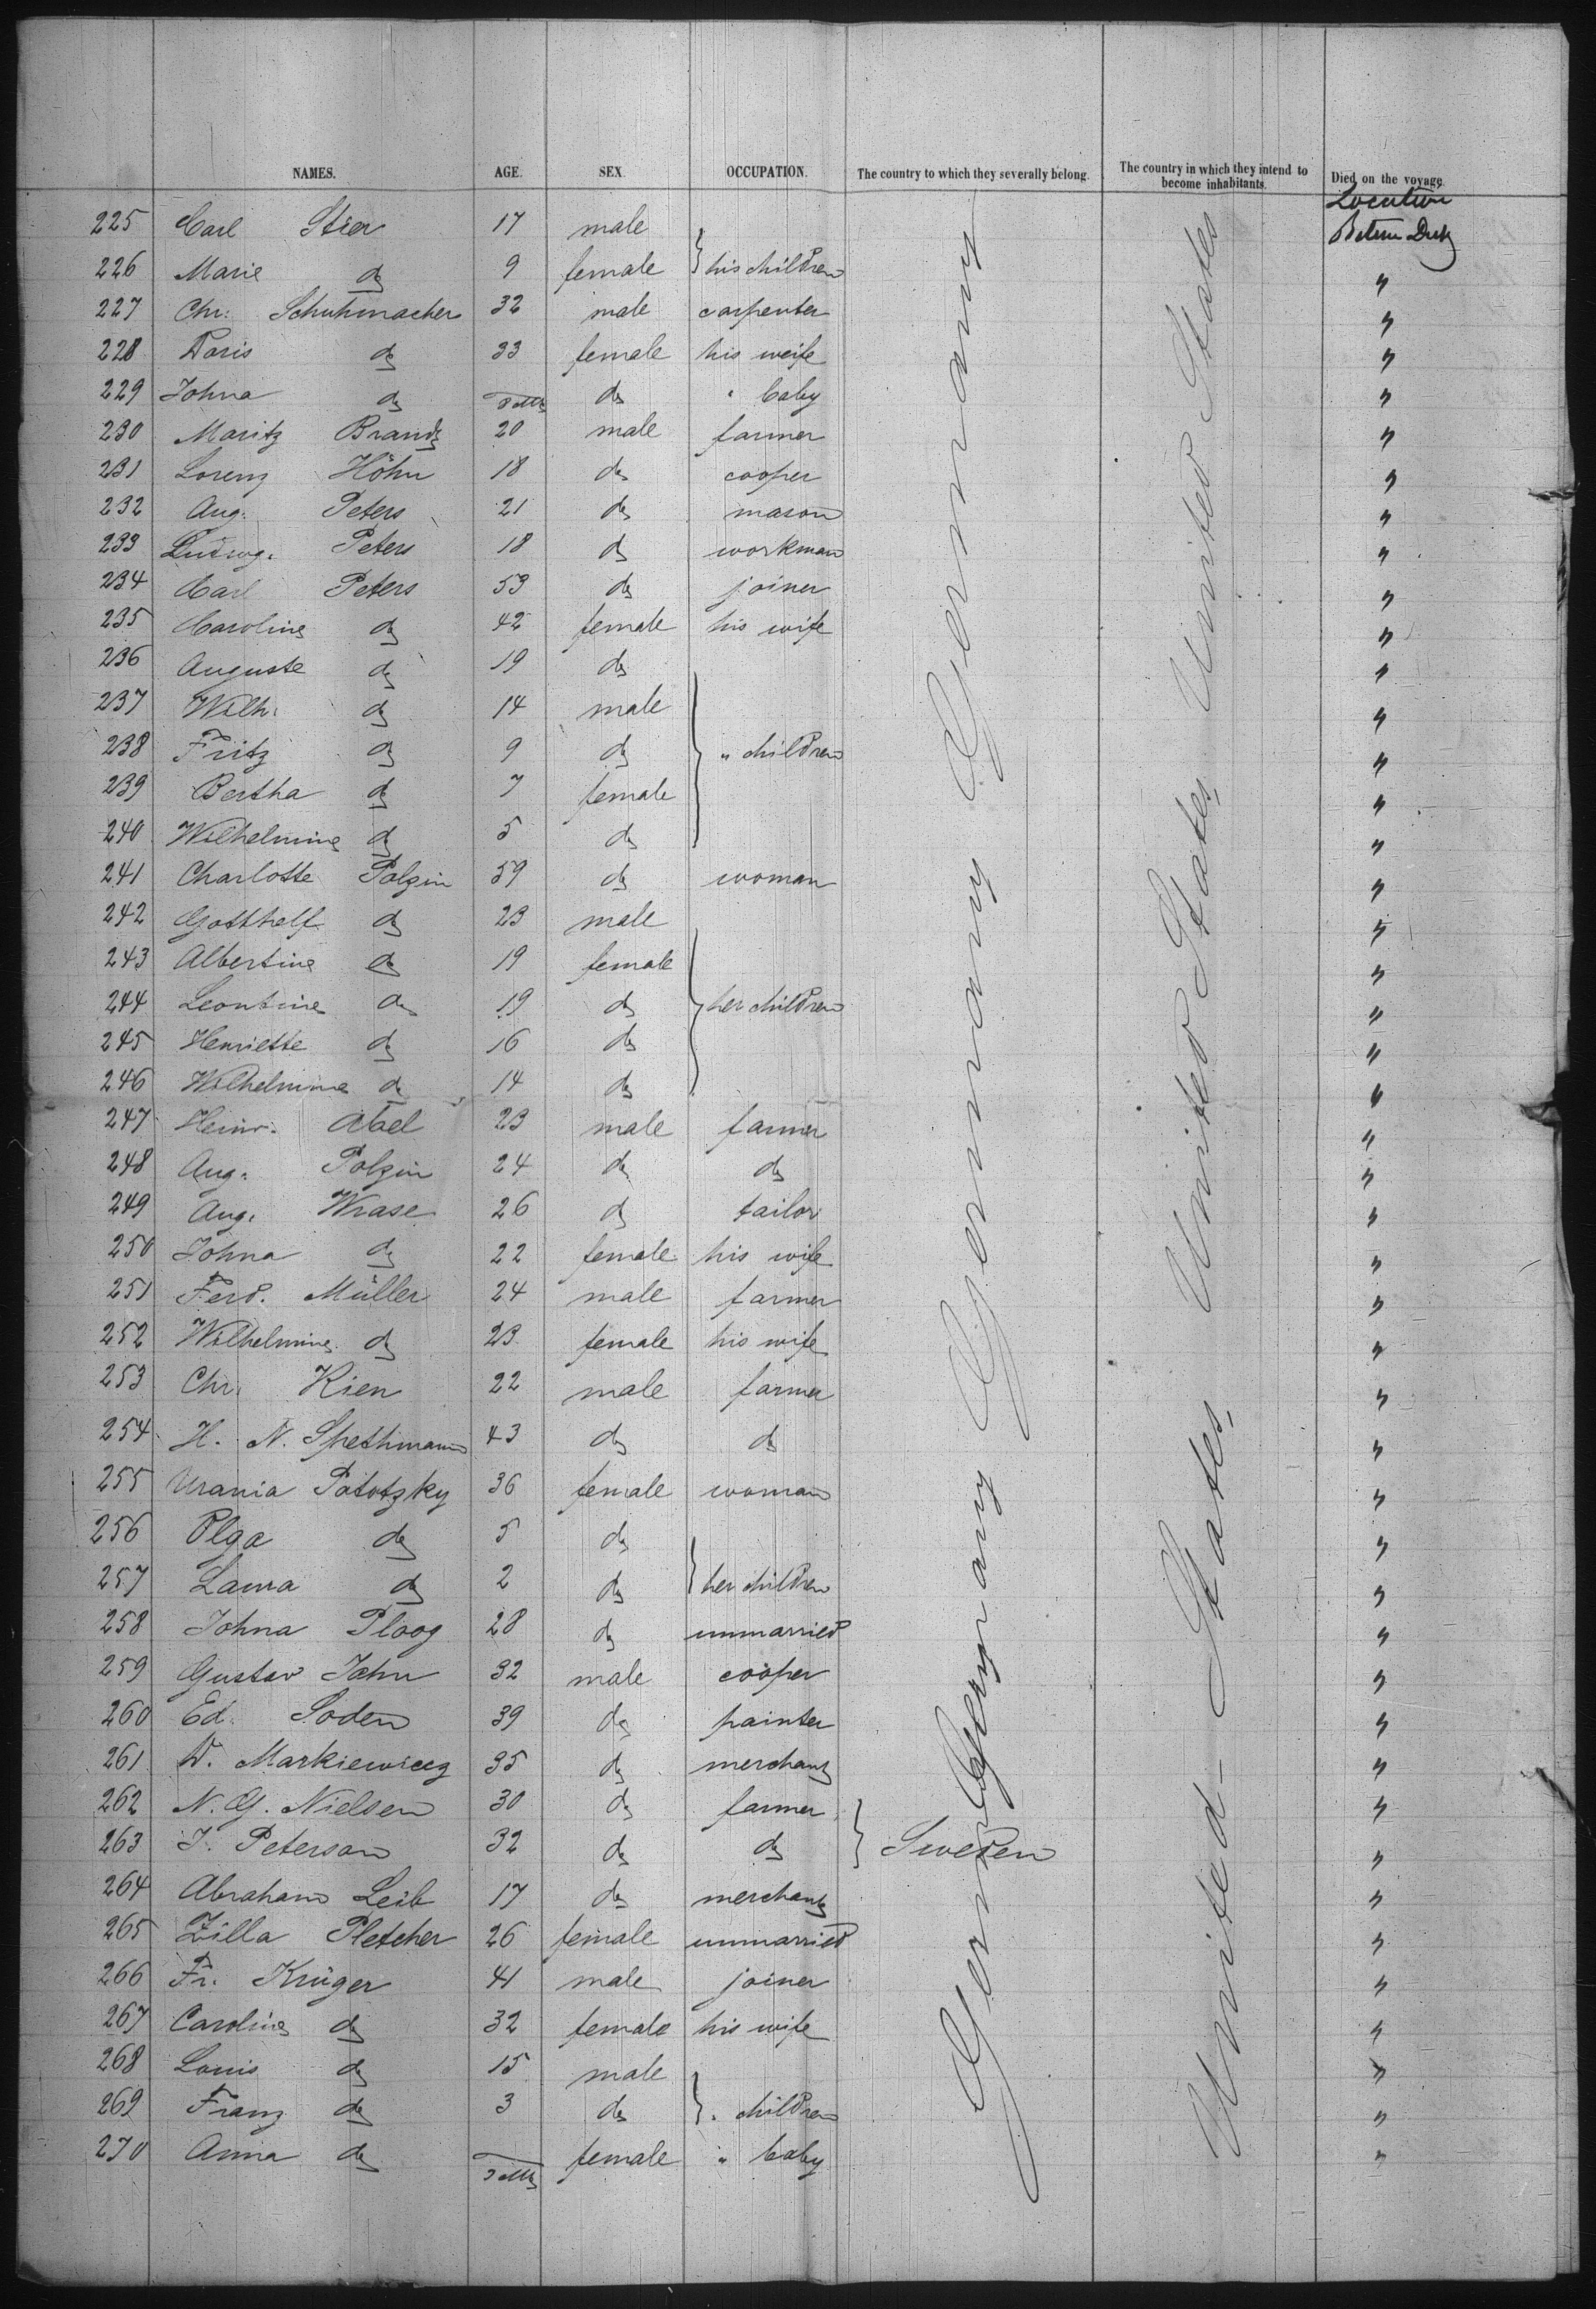 NAMES. AGE. SEX. OCCUPATION. The country to which they severally belong. The country in which they intend to become inhabitants. Died on the voyage.
Location
225 Carl 17 male Germany United States
226 Marie do 9 female } his children "
227 Chr. Schuhmacher 32 male carpenter "
228 Doris do 33 female his weife "
229 Johna do do " baby "
230 Moritz Brandt 20 male farmer "
231 Lorenz Höhn 18 do cooper "
232 Aug. Peters 21 do mason "
233 Ludwg. Peters 18 do workman "
234 Carl Peters 53 do joiner "
235 Caroline do 42 female his wife "
236 Auguste do 19 do "
237 Wilh. do 14 male "
238 Fritz do 9 do } " children "
239 Bertha do 7 female "
240 Wilhelmine do 5 do "
241 Charlotte Polzin 59 do woman Germany United States, "
242 Gotthelf do 23 male "
243 Albertine do 19 female "
244 Leontine do 19 do } her children "
245 Henriette do 16 do "
246 Wilhelmine do 14 do "
247 Heinr. Abel 23 male farmer "
248 Aug. Polzin 24 do do "
249 Aug. Wrase 26 do tailor "
250 Johna do 22 female his wife "
251 Ferd. Müller 24 male farmer "
252 Wilhelmine do 23 female his wife "
253 Chr. Kien 22 male farmer "
254 H. N. Spethmann 43 do do "
255 Urania Pototzky 36 female woman Germany United - States, "
256 Olga do 5 do "
257 Laura do 2 do } her children "
258 Johna Ploog 28 do unmarried "
259 Gustav Jahn 32 male cooper "
260 Ed. Soden 39 do painter "
261 W. Markiewicz 35 do merchant "
262 N. G. Nielsen 30 do farmer "
263 J. Peterson 32 do do } Sweden "
264 Abraham Leib 17 do merchant Germany "
265 Zilla Pletcher 26 female unmarried "
266 Fr. Krüger 41 male joiner "
267 Caroline do 32 female his wife "
268 Louis do 15 male "
269 Franz do 3 do } " children "
270 Anna do female " baby "